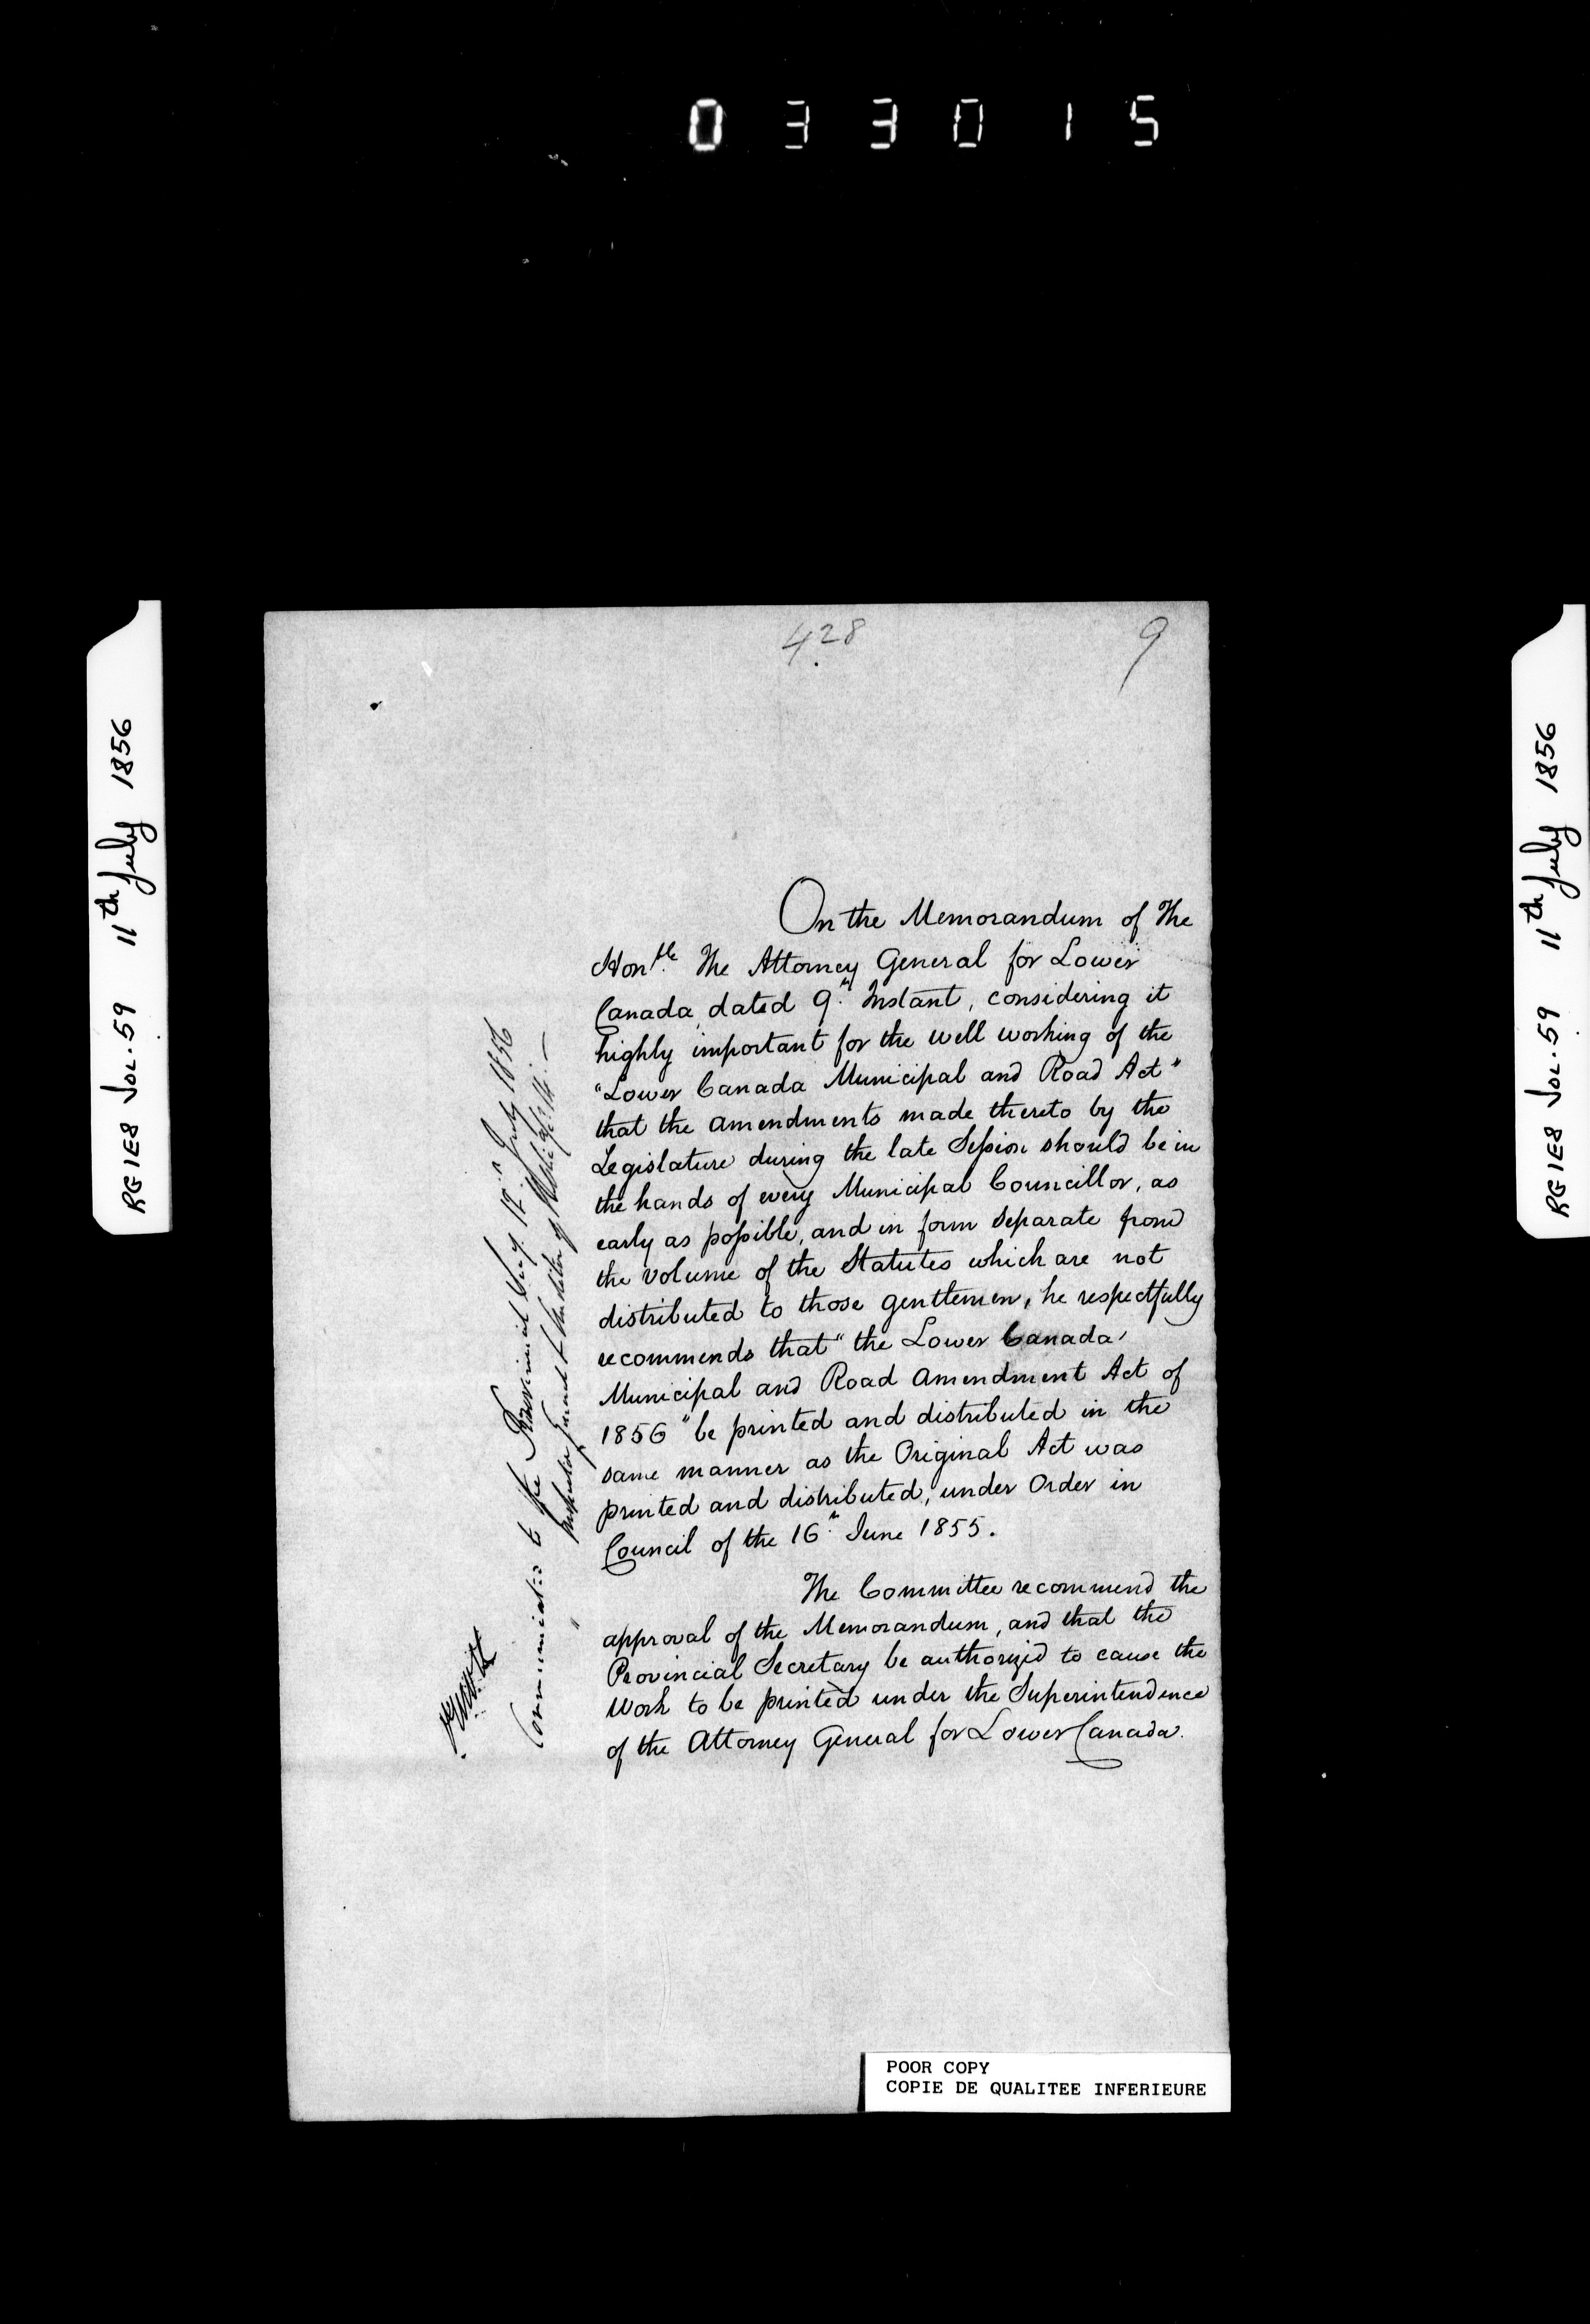 033015
RG1E8 VOL.59 11th July 1856
428
9
On the Memorandum of The
Honble. The Attorney General for Lower
Canada, dated 9th Instant, considering it
highly important for the well working of the
"Lower Canada Municipal and Road Act"
that the amendments made thereto by the
Legislature during the late Session should be in
the hands of every Municipal Councillor, as
early as possible, and in form separate from
the volume of the Statutes which are not
distributed to those gentlemen, he respectfully
recommends that "the Lower Canada
Municipal and Road Amendment Act of
1856" be printed and distributed in the
same manner as the Original Act was
printed and distributed, under Order in
Council of the 16th June 1855.
The Committee recommend the
approval of the Memorandum, and that the
Provincial Secretary be authorized to cause the
Work to be printed under the Superintendence
of the Attorney General for Lower Canada.
Communicated to the Provincial Secy. 12th July 1856
Inspector General & Auditor of Public Accts. 14
POOR COPY
COPIE DE QUALITEE INFERIEURE
RG1E8 VOL.59 11th July 1856